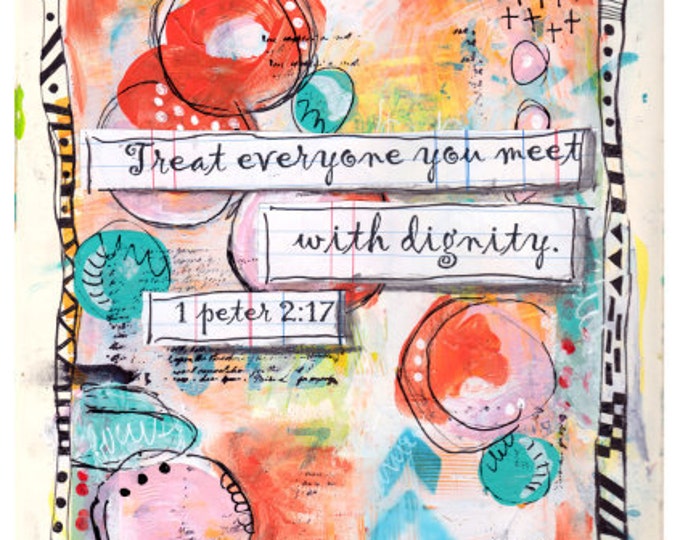 Treat everyone you meet
with dignity.
1 peter 2:17